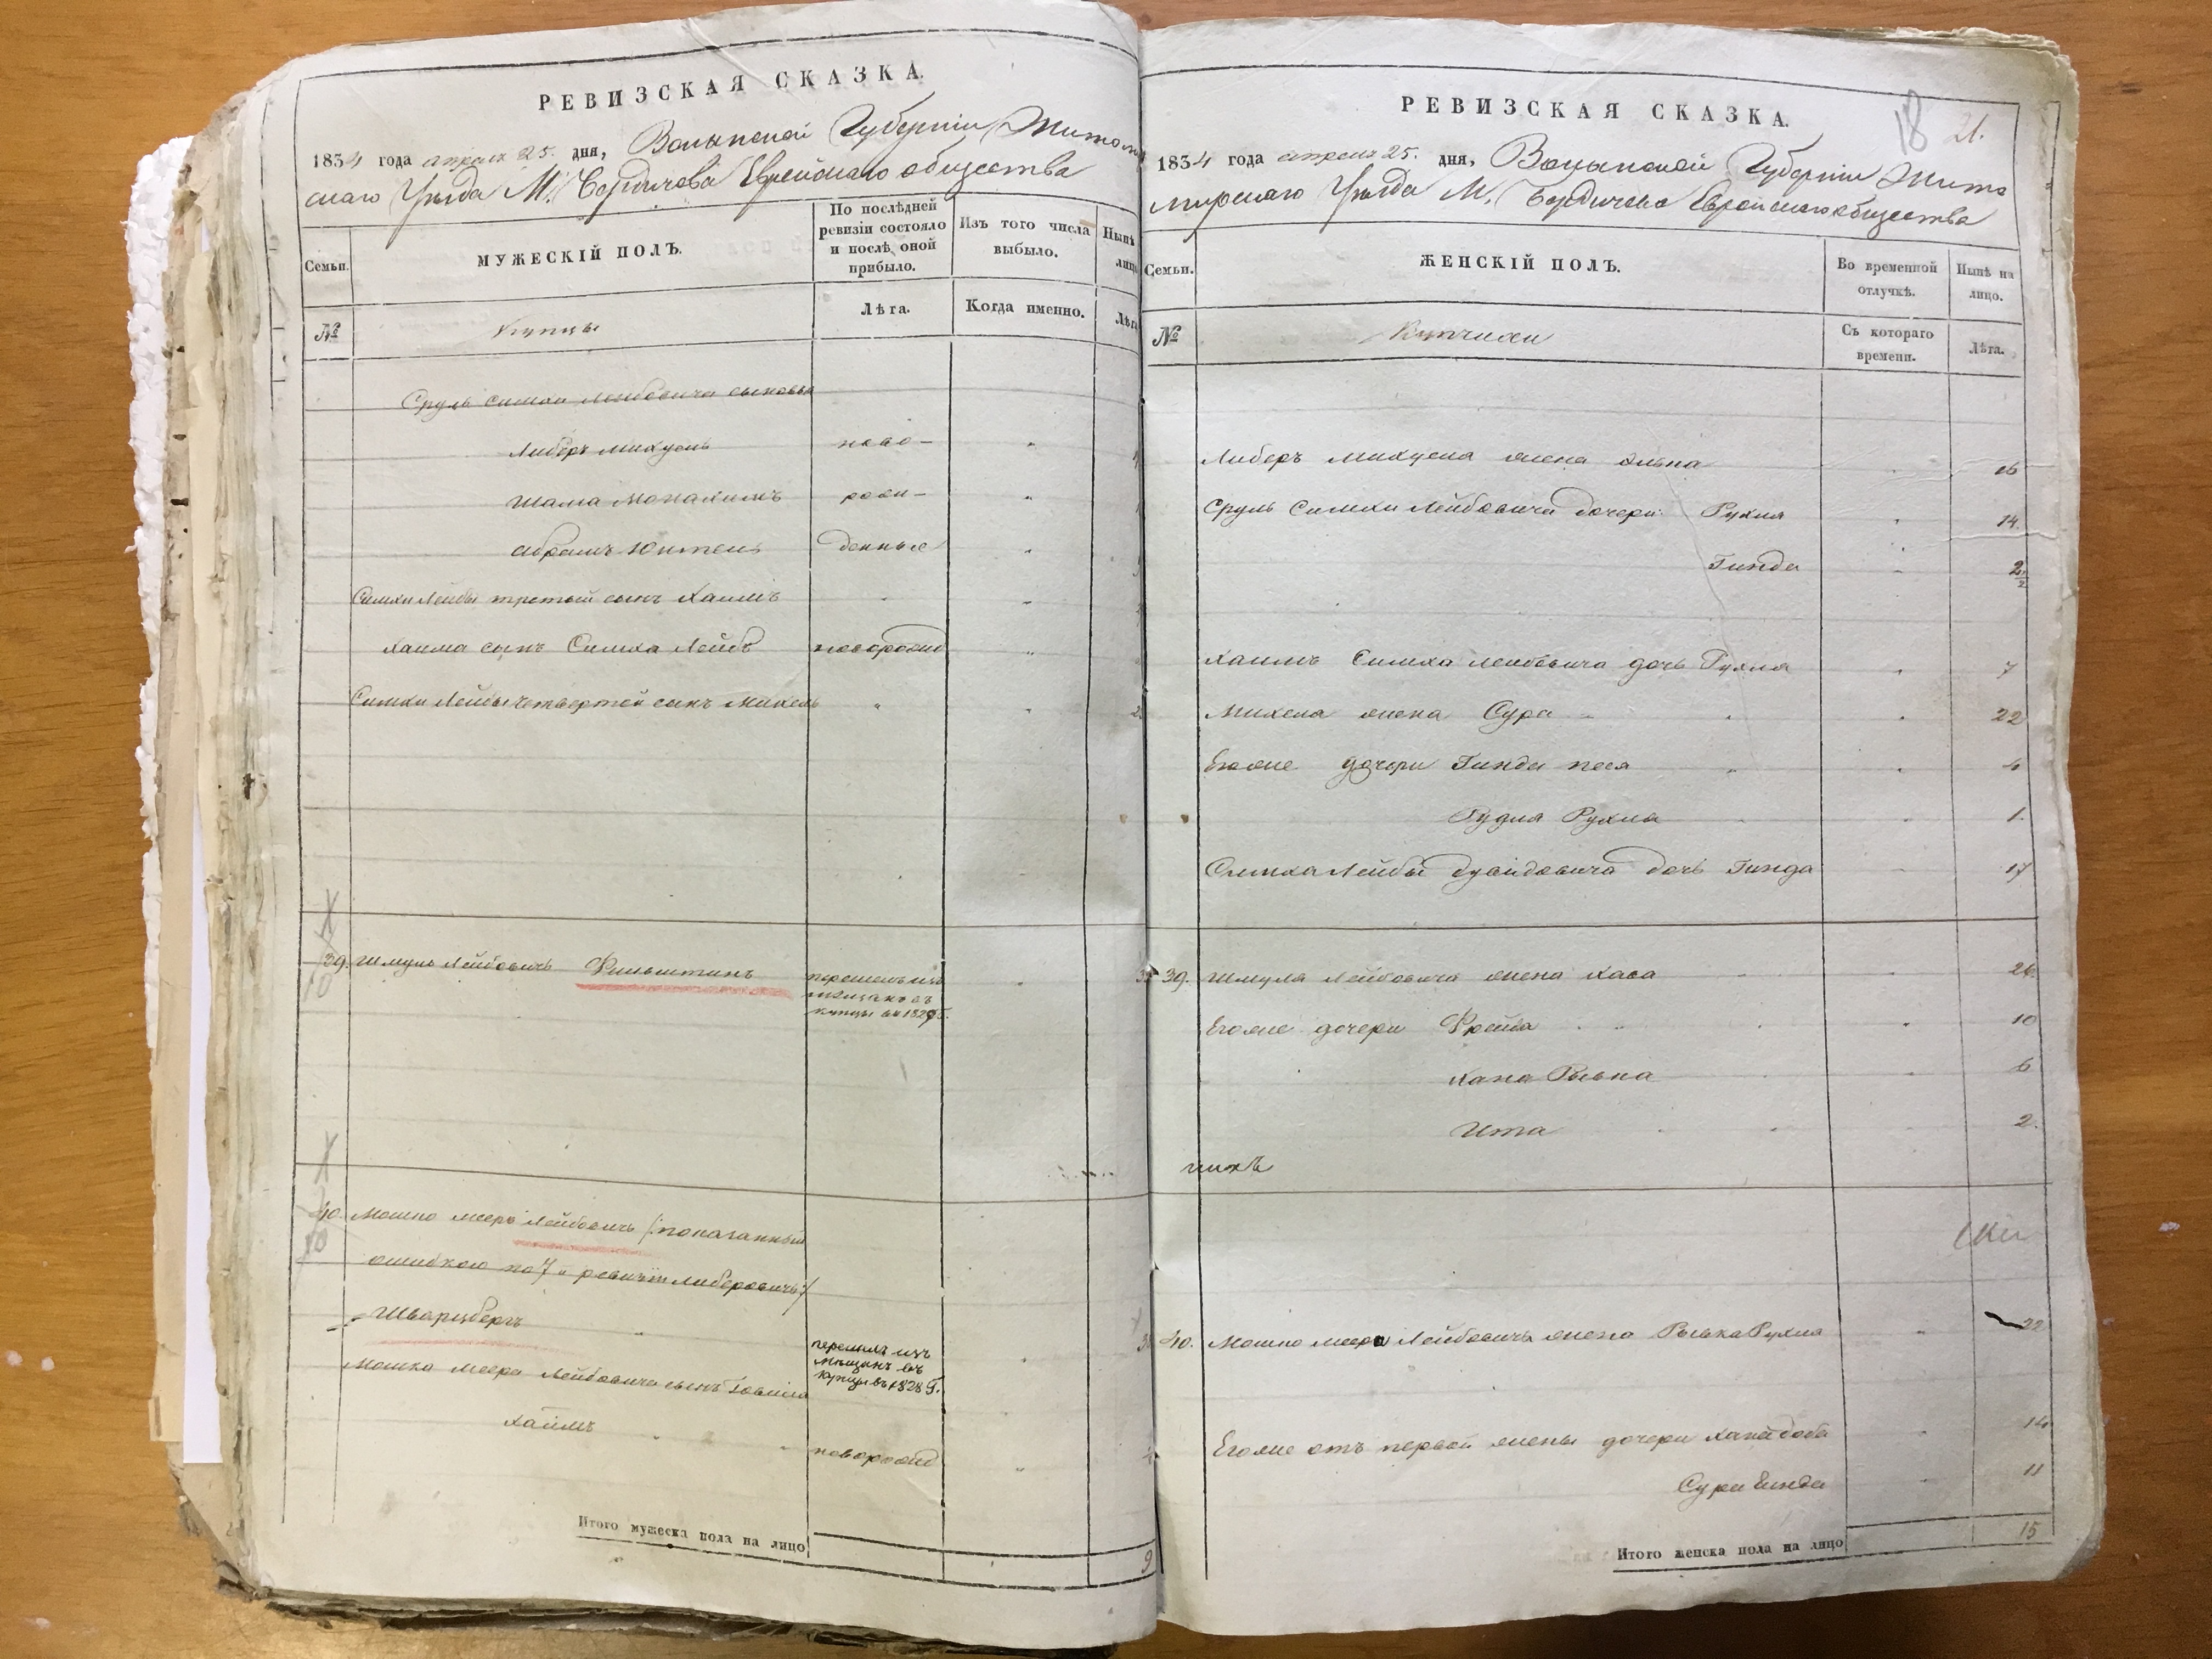 РЕВИЗСКАЯ СКАЗКА.
1834 года апреля 25. дня, Волынской Губерніи Житом
скаго Уезда М. Бердичева Еврейскаго общества
Семьи.
МУЖЕСКІЙ ПОЛЪ.
По послѣдней ревизіи состояло и послѣ оной прибыло.
Изъ того числа выбыло.
Нынѣ лицо
№
Купцы
Лѣта.
Когда именно.
Лѣта
Сруль Симхи Лейбовича сыновья
Либеръ Михуель ново-
Шама Монахимъ рожи-
Абрамъ Юктель денные
Симхи Лейбы третый сынъ Хаимъ
Хаима сынъ Симха Лейбъ новорожд
Симхи Лейбы четвертой сынъ Михель
39. Шмуль Лейбовичъ Фильштинъ перешелъ изъ
мещанъ въ
купцы въ 1829 г.
40. Мошко Мееръ Лейбовичъ /:показанный
ошибкою по 7 й ревизіи Либеровичъ:/
Шварцбергъ
перешелъ изъ
мещанъ въ
купцы въ 1828 г.
Мошко Меера Лейбовича сынъ
Хаимъ
новорожд
Итого мужеска пола на лицо 9
РЕВИЗСКАЯ СКАЗКА.
18 21.
1834 года апреля 25. дня, Волынской Губерніи Жито
мирскаго Уезда М. Бердичева Еврейскаго общества
Семьи.
ЖЕНСКІЙ ПОЛЪ.
Во временной отлучкѣ.
Нынѣ на лицо.
№
Купчихи
Съ котораго времени.
Лѣта.
Либеръ Михуеля жена Эльна 16
Сруль Симхи Лейбовича дочери Рухля 14
Гинда 2½
Хаимъ Симха Лейбовича дочь Рухля 7
Михеля жена Сура 22
Егоже дочери Гинда Песя 4
Рудля Рухля 1.
Симха Лейбы Дувидовича дочь Гинда 17
39. Шмуля Лейбовича жена Хава 26.
Егоже дочери Фрейда 10
Хана Рывка 6
Ита 2.
нихъ
40. Мошко Меера Лейбовича жена Рывка Рухля 22
Егоже отъ первой жены дочери Хана Доба 14
Сура Гинда 11
Итого женска пола на лицо 15